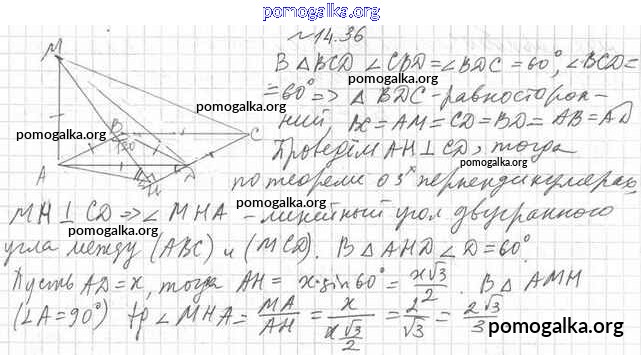 pomogalka.org
№14.36
В △BCD ∠CBD=∠BDC =60°, ∠BCD=
=60° => △ BDC - равносторон-
ний, BC = AM = CD = BD = AB = AD
Проведём AH ⊥ CD, тогда
по теореме о 3х перпендикулярах
MH ⊥ CD => ∠ MHA - линейный угол двугранного
угла между (ABC) и (MCD). В △ AHD ∠D=60°.
Пусть AD=x, тогда AH= x·sin60° = x√3/2. В △ AMH
(∠A=90°) tg ∠MHA = MA/AH = x/(x√3/2) = 2/√3 = 2√3/3
M
B
120°
C
A
H
D
pomogalka.org
pomogalka.org
pomogalka.org
pomogalka.org
pomogalka.org
pomogalka.org
pomogalka.org